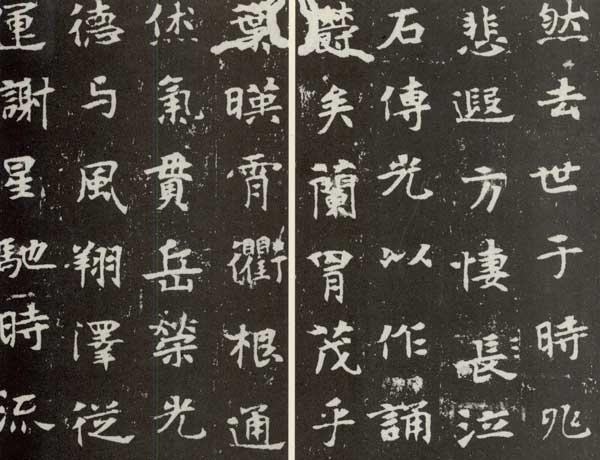 然去世于時兆
悲遐方悽長泣
石傳光以作誦
欝矣蘭胄茂乎
葉暎霄衢根通
休氣貫岳榮光
德与風翔澤從
運謝星馳時流